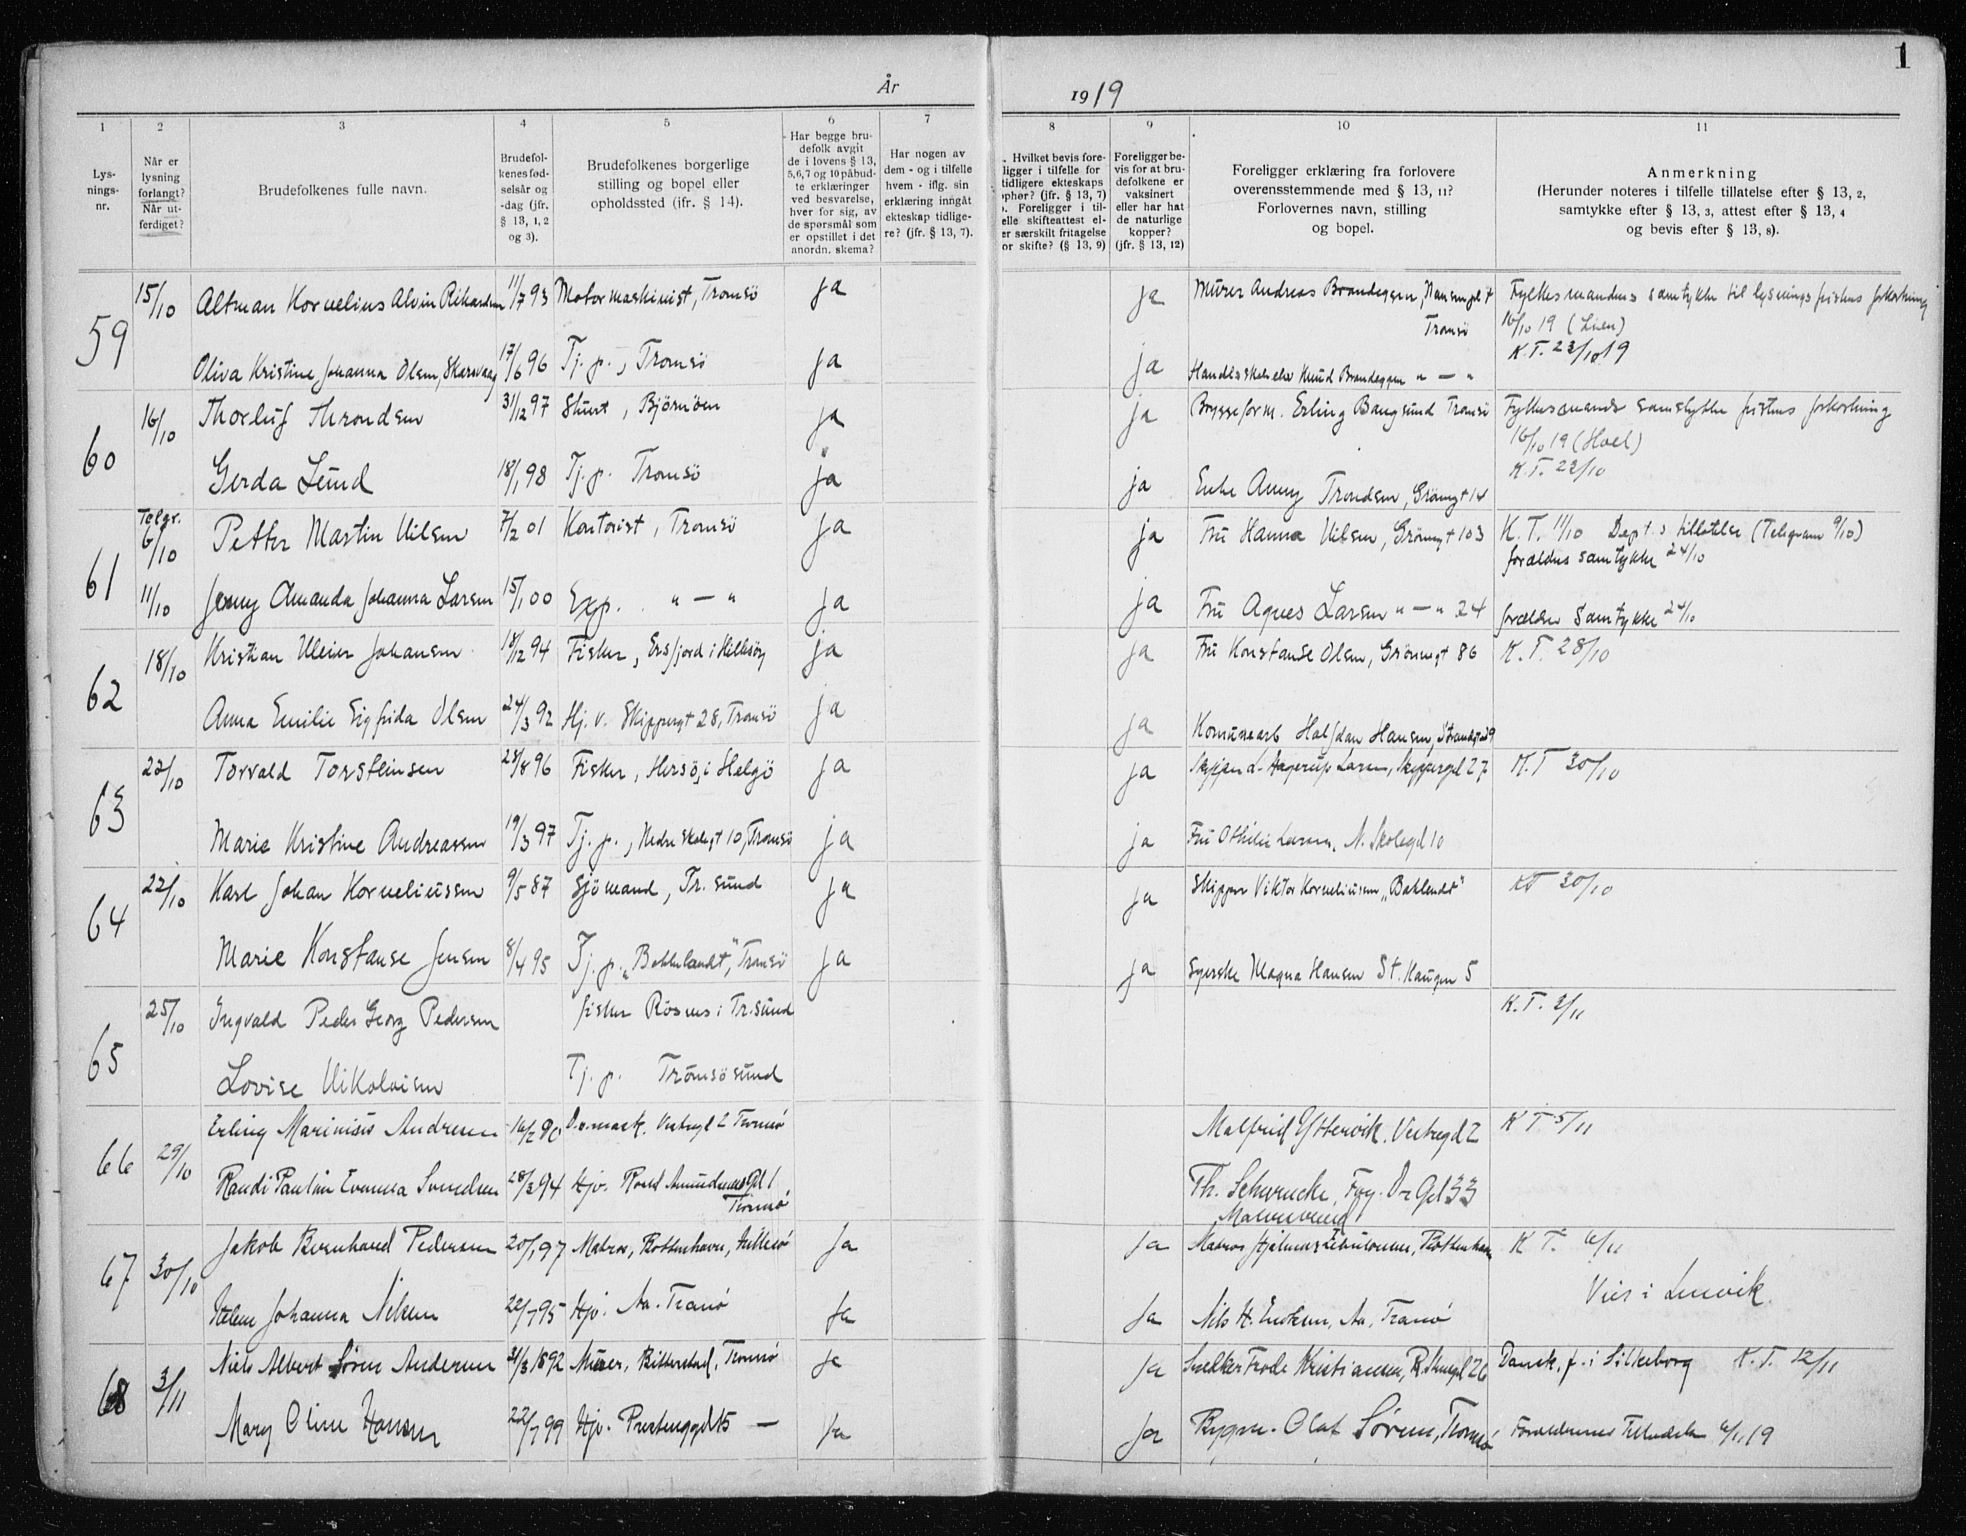 1
År
1919
1
2
3
4
5
6
7
8
9
10
11
Lys-
nings-
nr.
Når er
lysning
forlangt?
Når ut-
ferdiget?
Brudefolkenes fulle navn.
Brudefol-
kenes fød-
selsår og
-dag (jfr.
§ 13, 1, 2
og 3).
Brudefolkenes borgerlige
stilling og bopel eller
opholdssted (ifr. § 14).
Har begge bru-
defolk avgit
de i lovens § 13,
5,6,7 og 10 påbud-
te erklæringer
ved besvarelse,
hver for sig, av
de spørsmål som
er opstillet i det
anordn. skema?
Har nogen av
dem - og i tilfelle
hvem - iflg. sin
erklæring inngåt
ekteskap tidlige-
re? (jfr. § 13, 7).
. Hvilket bevis fore-
ligger i tilfelle for
tidligere ekteskaps
ophør? (jfr. § 13, 7)
. Foreligger i til-
elle skifteattest el-
er særskilt fritagelse
or skifte? (§ 13, 9)
Foreligger be-
vis for at bru-
defolkene er
vaksinert
eller har hat
de naturlige
kopper?
(jfr. § 13, 12)
Foreligger erklæring fra forlovere
overensstemmende med § 13, 11?
Forlovernes navn, stilling
og bopel.
Anmerkning
(Herunder noteres i tilfelle tillatelse efter § 13, 2,
samtykke efter § 13, 3, attest efter § 13, 4
og bevis efter § 13, 8).
59 15/10 Altman Kornelius Alvin Rikardsen 11/7 93 Motormaskinist, Tromsö ja ja Murer Andreas Brandeggen, Tromsö Fylkesmandens samtykke til lysningsfristens forkortning 16/10 19 (Lien) K.T. 23/10 19
Oliva Kristine Johanna Olsen, Skarsvaag 17/6 96 Tj. p., Tromsö ja ja Knud Brandeggen " — "
60 16/10 Thorleif Throndsen 31/12 97 Stuert, Björnöen ja ja Bryggeform. Erling Bangsund Tromsö Fylkesmands samtykke fristens forkortning 16/10 19 (Hoel) K.T. 22/10
Gerda Lund 18/1 98 Tj. p. Tromsö ja ja Enke Anny Trondsen, Grönnegt 14
61 Telgr. 6/10 Petter Martin Nilsen 7/2 01 Kontorist, Tromsö ja ja Fru Hanna Nilsen, Grönnegt 103 K.T. 11/10 Dept.s tillatelse (Telegram 9/10) forældres samtykke 24/10
11/10 Jenny Amanda Johanna Larsen 15/1 00 Exp. " — " ja ja Fru Agnes Larsen " — " 24 forældre samtykke 24/10
62 18/10 Kristian Johansen 18/12 94 Fisker, Ersfjord i Hillesöy ja ja Fru Konstanse Olsen, Grönnegt 86 K.T. 28/10
Anna Emilie Sigfrida Olsen 24/3 92 Hj. v. Skippergt 28, Tromsö ja ja Halfdan Hansen,
63 22/10 Torvald Torsteinsen 28/8 96 Fisker, i Helgö ja ja Hagerup Larsen, Skippergt 27 K.T 30/10
Marie Kristine Andreassen 19/3 97 Tj. p., Nedre Skolegt 10, Tromsö ja ja Fru Othilie Larsen, N. Skolegd 10
64 22/10 Karl Johan Korneliussen 9/5 87 Sjömand, Tr. sund ja ja Skipper Viktor Korneliussen, KT 30/10
Marie Konstanse Jensen 8/4 95 Tj. p. Tromsö ja ja Syerske Magna Hansen St. Haugen 5
65 25/10 Ingvald Peder Georg Pedersen fisker i Tr.sund K.T. 2/11
Lovise Nikolaisen Tj. p. Tromsösund
66 29/10 Erling Marinius Andresen 16/2 90 Vestregt 2 Tromsø Malfrid Yttervik. Vestregd 2 K T 5/11
Randi Paulin Svendsen 28/3 94 Hjv. Roald Amundsens Gd 1 Tromsø Th. Schwencke,
67 30/10 Jakob Bernhard Pedersen 20/1 97 Matros, Hillesø Ja Ja Matros K T. 6/11
Helene Johanna Nilsen 22/7 95 Hjv. Aa. Tranø Ja Ja Nils H. Aa, Tranø Vies i Lenvik
68 3/11 Niels Albert Sören Andersen 21/3 1892 Murer, Tromsø Ja Ja Snekker Frode Kristiansen, Dansk, f. i Silkeborg K.T. 12/11
Mary Oline Hansen 22/7 99 Hjv. — Ja Ja Olaf Sørensen, Tromsø Forældrenes 6/11 19